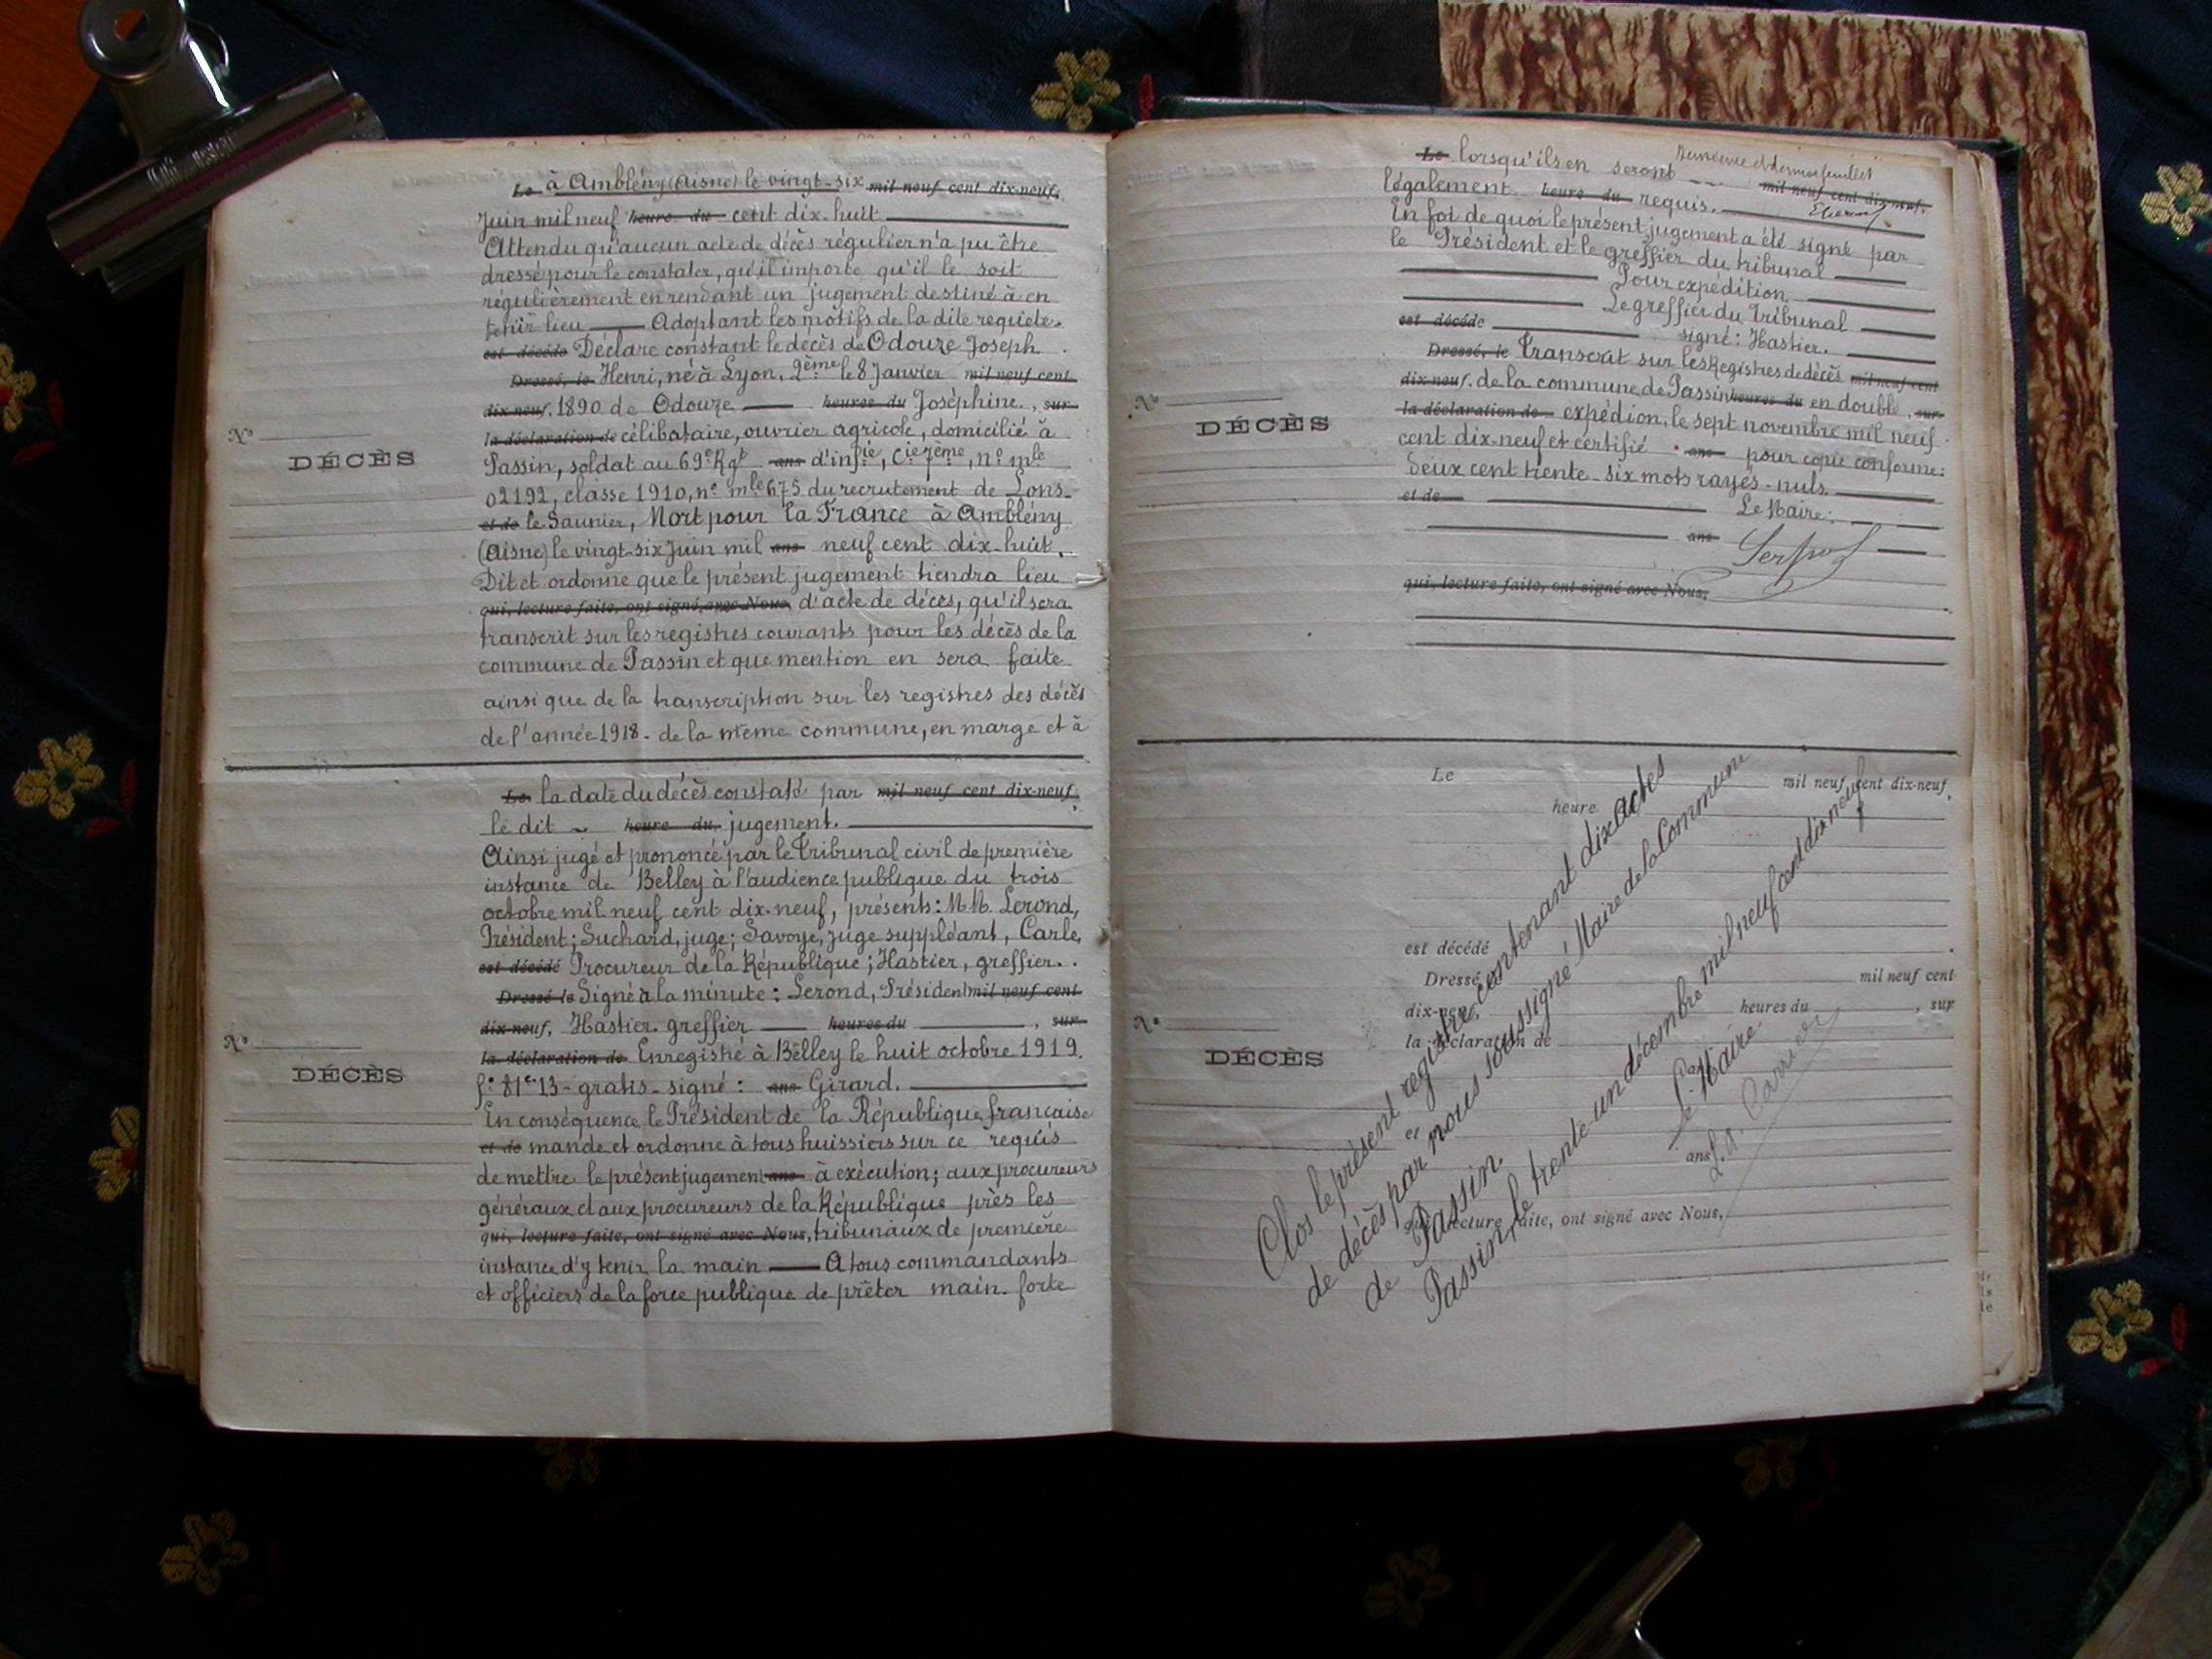 Le à Ambleny (Aisne) le vingt-six mil neuf cent dix-neuf,
Juin mil neuf heure du cent dix-huit
Attendu qu'aucun acte de décès régulier n'a pu être
dressé pour le constater, qu'il importe qu'il le soit
régulièrement en rendant un jugement destiné à en
tenir lieu — Adoptant les motifs de la dite requête.
est décédé Déclare constant le décès de Odouze Joseph
Dressé, le Henri, né à Lyon, 2ème le 8 Janvier mil neuf cent
dix-neuf, 1890 de Odouze — heures du Joséphine, sur
la déclaration de célibataire, ouvrier agricole, domicilié à
N°
DÉCÈS
Passin, soldat au 69e Rgt ans d'infie, Cie 7ème, n° mle
02192, classe 1910, n° mle 675 du recrutement de Lons-
et de le Saunier, Mort pour la France à Ambleny
(Aisne) le vingt-six Juin mil ans neuf cent dix-huit.
Dit et ordonne que le présent jugement tiendra lieu
qui, lecture faite, ont signé avec Nous, d'acte de décès, qu'il sera
transcrit sur les registres courants pour les décès de la
commune de Passin et que mention en sera faite
ainsi que de la transcription sur les registres des décès
de l'année 1918 - de la même commune, en marge et à
Le la date du décès constaté par mil neuf cent dix-neuf,
le dit ~ heure du jugement.
Ainsi jugé et prononcé par le Tribunal civil de première
instance de Belley à l'audience publique du trois
octobre mil neuf cent dix-neuf, présents: M.M. Lerond,
Président; Suchard, juge; Savoye, juge suppléant, Carle,
est décédé Procureur de la République; Hastier, greffier.
Dressé le Signé à la minute: Lerond, Président mil neuf cent
dix-neuf, Hastier. greffier — heures du , sur
N°
DÉCÈS
la déclaration de Enregistré à Belley le huit octobre 1919.
f° 81 c. 13 - gratis - signé: ans Girard.
En conséquence le Président de la République française
et de mande et ordonne à tous huissiers sur ce requis
de mettre le présent jugement ans à exécution; aux procureurs
généraux et aux procureurs de la République près les
qui, lecture faite, ont signé avec Nous, tribunaux de première
instance d'y tenir la main — A tous commandants
et officiers de la force publique de prêter main-forte
Deuxième et dernier feuillet
Le lorsqu'ils en seront mil neuf cent dix-neuf,
légalement heure du requis.
En foi de quoi le présent jugement a été signé par
le Président et le greffier du tribunal
Pour expédition
Le greffier du Tribunal
est décédé signé: Hastier.
Dressé, le Transcrit sur les Registres de décès mil neuf cent
dix-neuf, de la commune de Passin heures du en double, sur
N°
DÉCÈS
la déclaration de expédion, le sept novembre mil neuf
cent dix-neuf et certifié ans pour copie conforme:
deux cent trente-six mots rayés-nuls.
et de Le Maire:
ans
qui, lecture faite, ont signé avec Nous,
Le mil neuf cent dix-neuf,
heure
est décédé
Dressé, mil neuf cent
dix-neuf, heures du , sur
la déclaration de
N°
DÉCÈS
et
ans
qui, lecture faite, ont signé avec Nous,
Clos le présent registre contenant dix actes
de décès par nous soussigné Maire de la Commune
de Passin.
Passin, le trente-un décembre mil neuf cent dix neuf
Le Maire